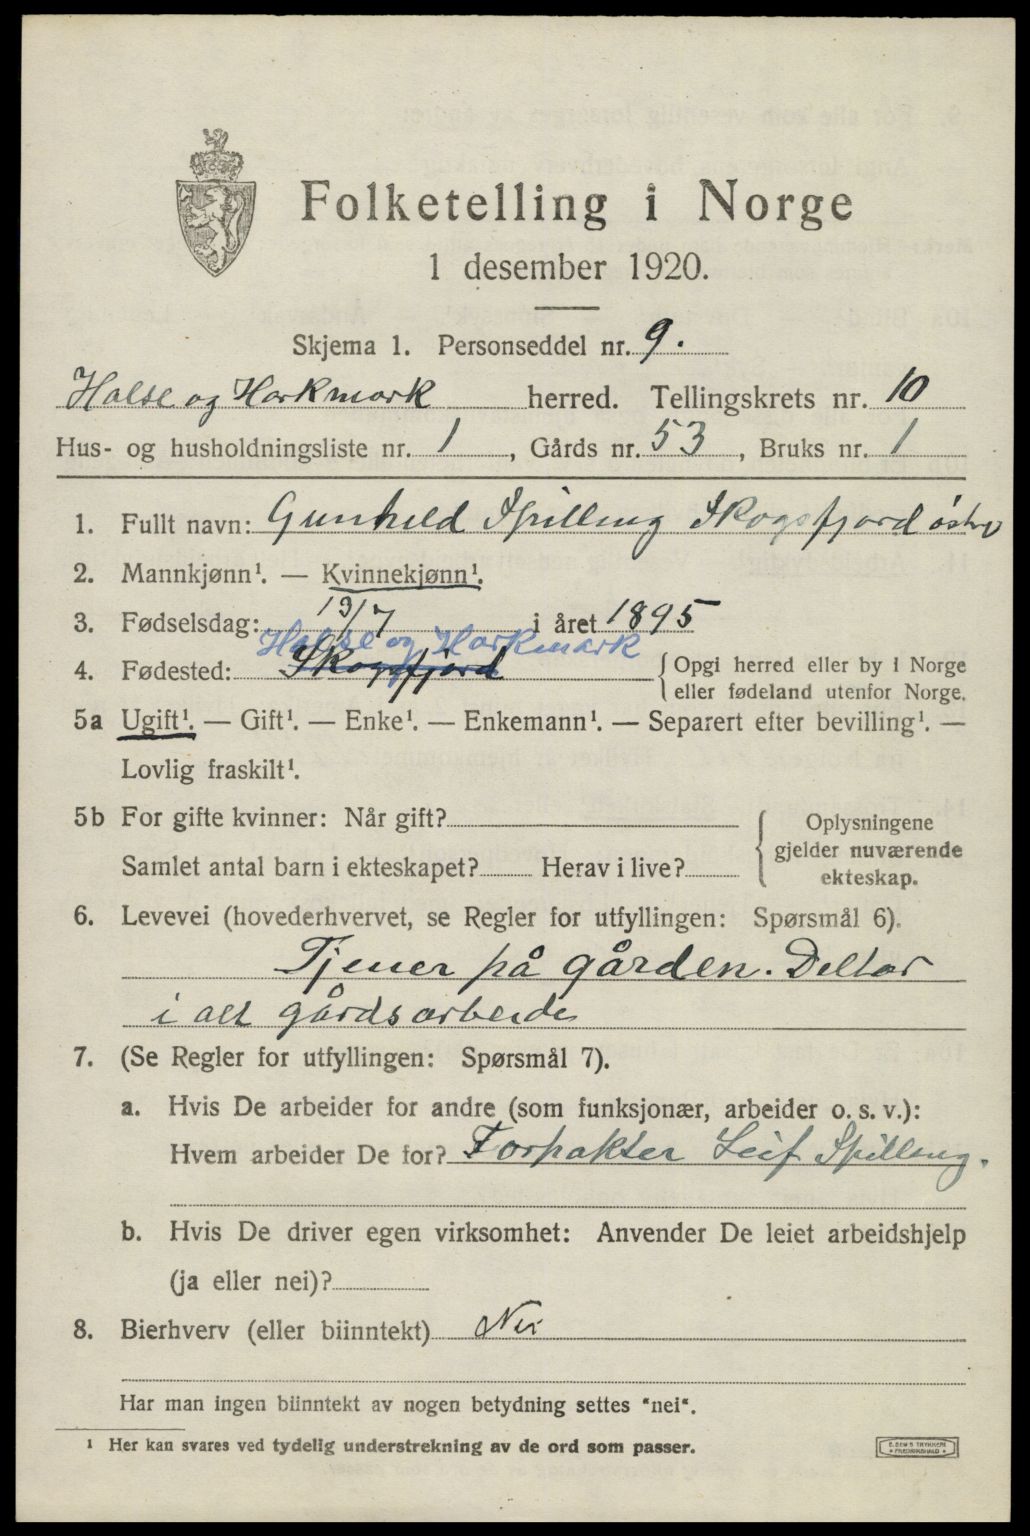 Folketelling i Norge
1 desember 1920.
Skjema 1. Personseddel nr. 9.
Halse og Harkmark herred. Tellingskrets nr. 10
Hus- og husholdningsliste nr. 1, Gårds nr. 53, Bruks nr. 1
1. Fullt navn: Gunhild Spilling Skogsfjord østre
2. Mannkjønn¹. — Kvinnekjønn¹.
3. Fødselsdag: 19/7 i året 1895
Halse og Harkmark
4. Fødested: Skogsfjord { Opgi herred eller by i Norge
eller fødeland utenfor Norge.
5a Ugift¹. — Gift¹. — Enke¹. — Enkemann¹. — Separert efter bevilling¹. —
Lovlig fraskilt¹.
5b For gifte kvinner: Når gift?
Samlet antal barn i ekteskapet? Herav i live?
{ Oplysningene
gjelder nuværende
ekteskap.
6. Levevei (hovederhvervet, se Regler for utfyllingen: Spørsmål 6).
Tjener på gården. Deltar
i alt gårdsarbeide
7. (Se Regler for utfyllingen: Spørsmål 7).
a. Hvis De arbeider for andre (som funksjonær, arbeider o. s. v.):
Hvem arbeider De for? Forpakter Leif Spilling.
b. Hvis De driver egen virksomhet: Anvender De leiet arbeidshjelp
(ja eller nei)?
8. Bierhverv (eller biinntekt) Nei
Har man ingen biinntekt av nogen betydning settes "nei".
¹ Her kan svares ved tydelig understrekning av de ord som passer.